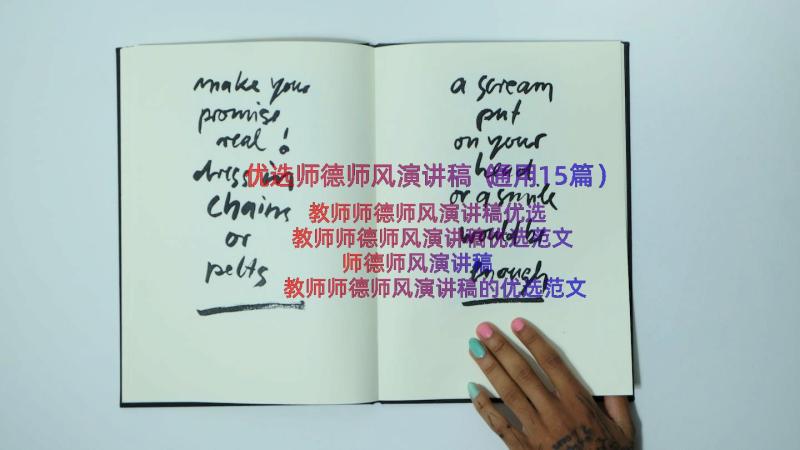 make your
promise
real!
dressing
chains
or
pelts
a scream
put
on your
head
or a smile
would be
enough
优选师德师风演讲稿（通用15篇）
教师师德师风演讲稿优选
教师师德师风演讲稿优选范文
师德师风演讲稿
教师师德师风演讲稿的优选范文